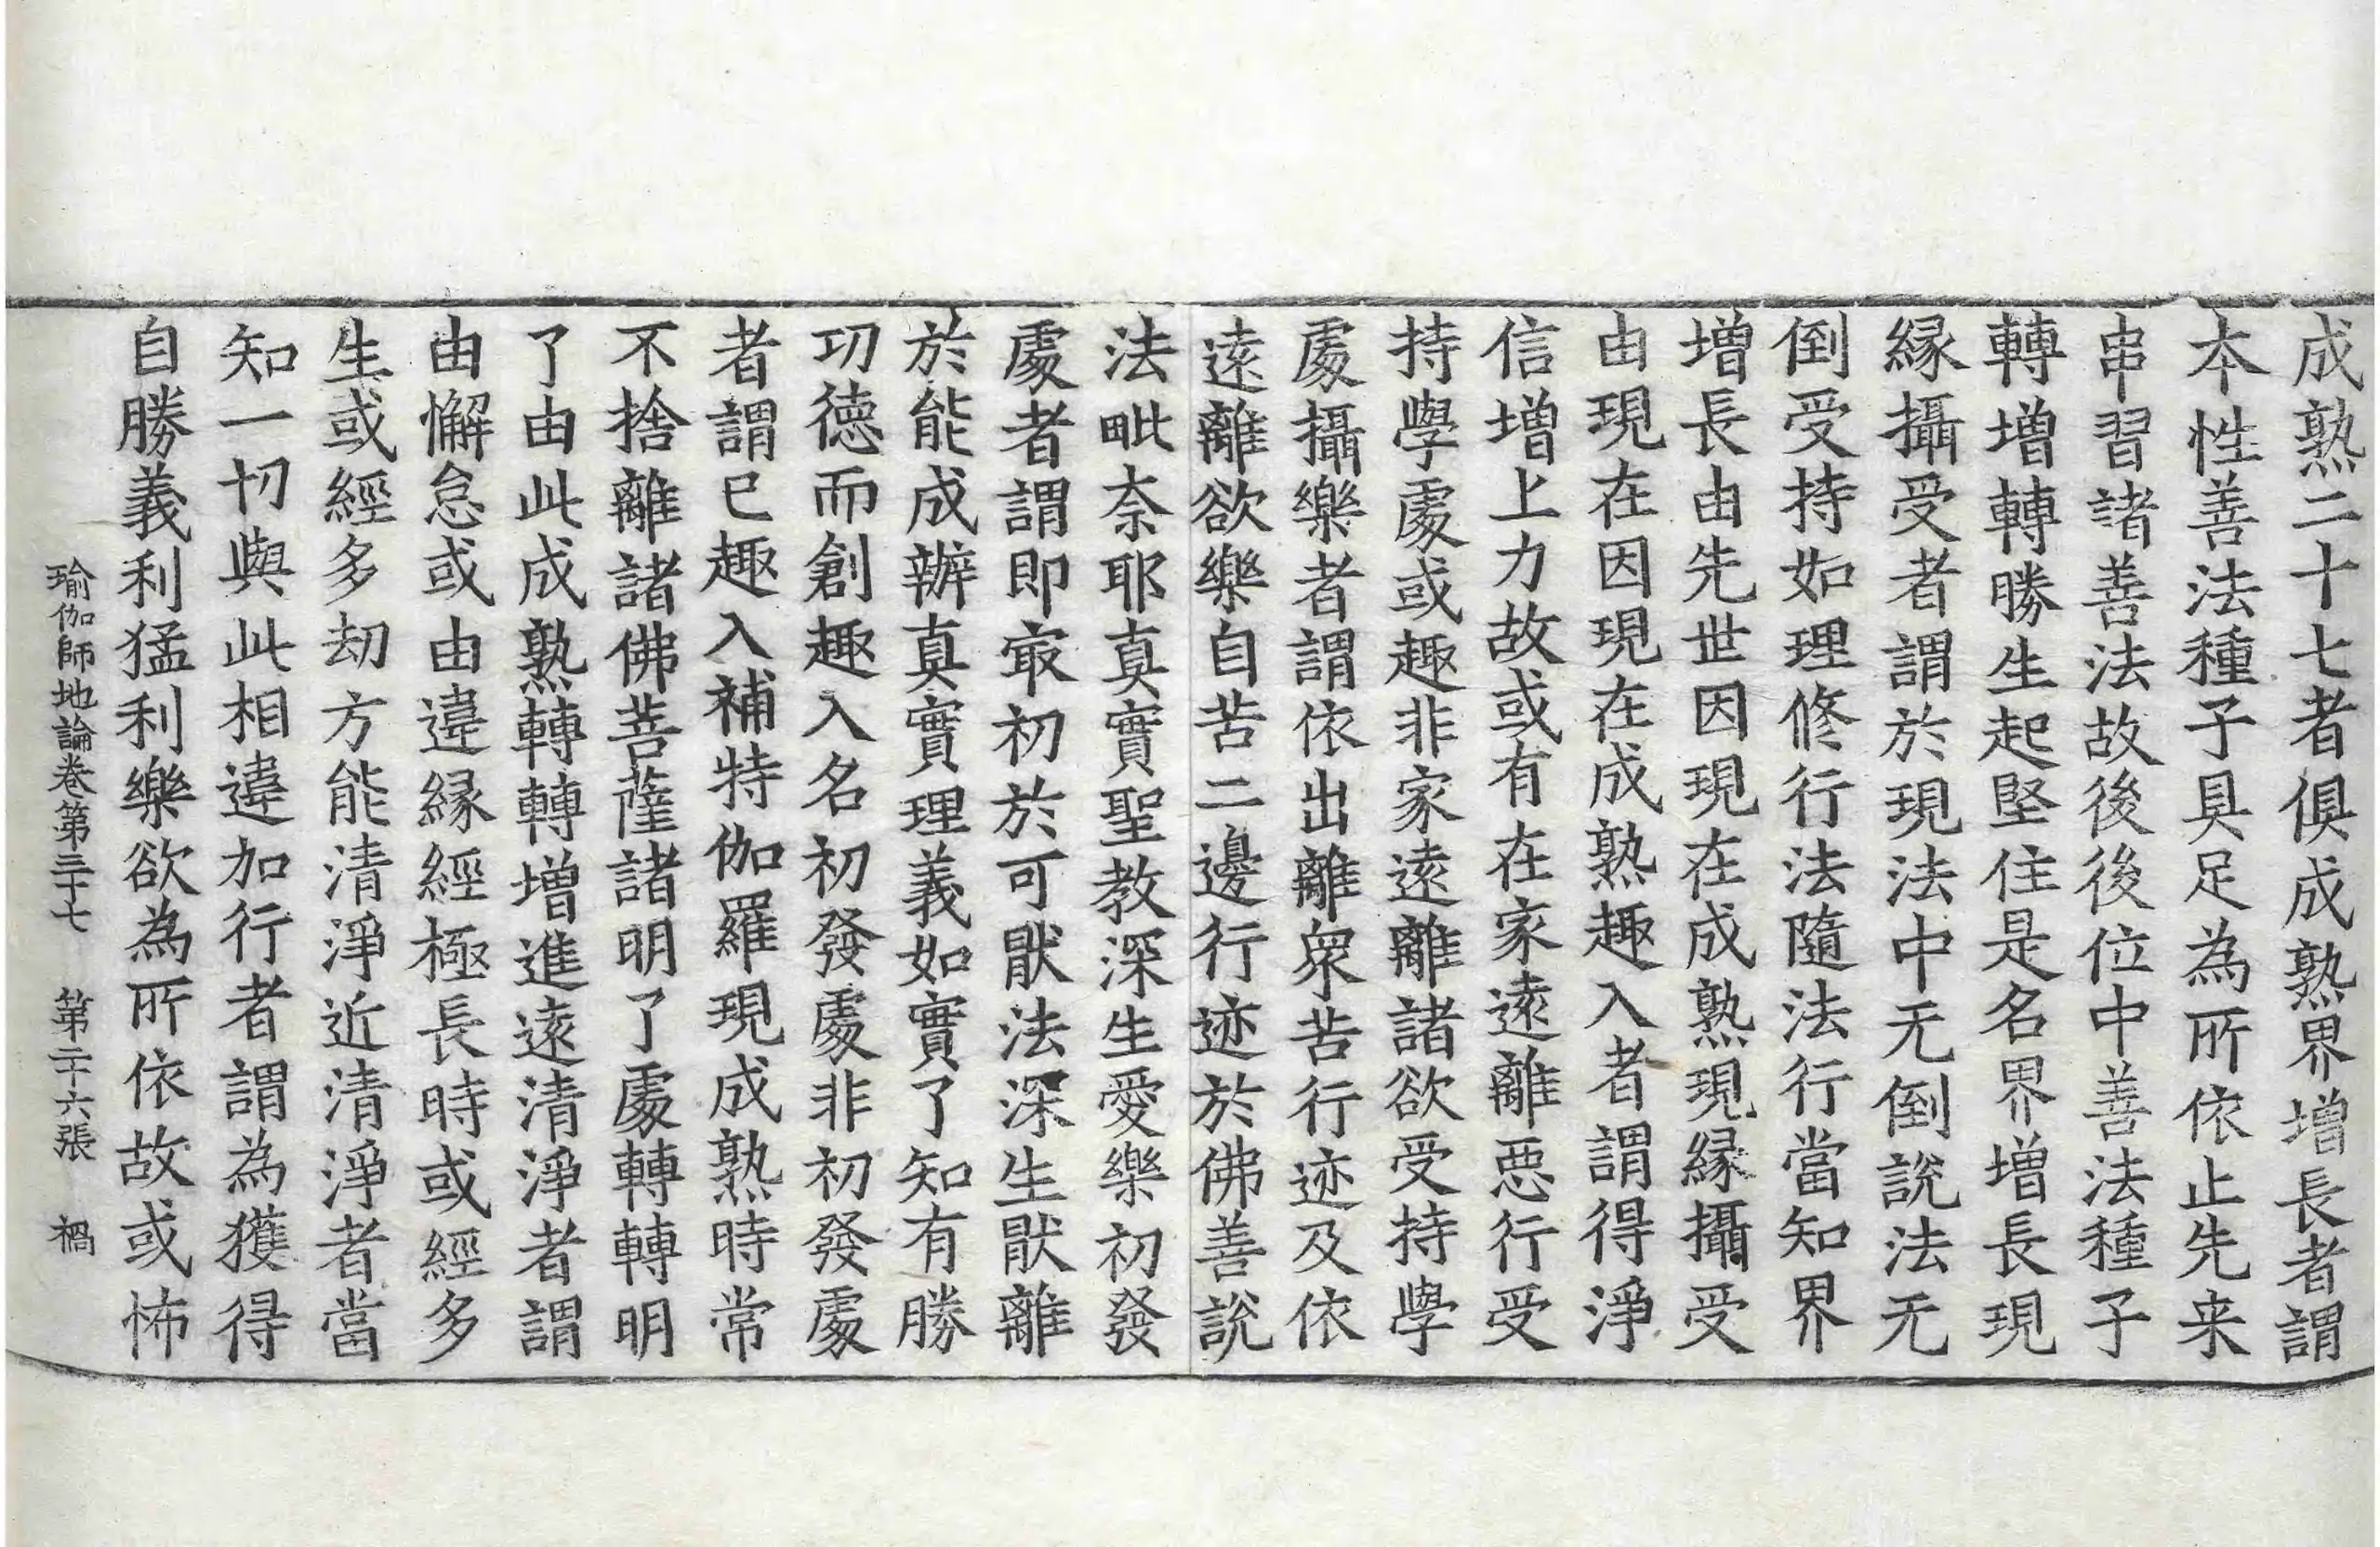 成熟二十七者俱成熟界增長者謂
本性善法種子具足為所依止先来
串習諸善法故後後位中善法種子
轉增轉勝生起堅住是名界增長現
縁攝受者謂於現法中无倒說法无
倒受持如理修行法隨法行當知界
增長由先世因現在成熟現縁攝受
由現在因現在成熟趣入者謂得淨
信增上力故或有在家遠離惡行受
持學處或趣非家遠離諸欲受持學
處攝樂者謂依出離衆苦行迹及依
遠離欲樂自苦二邊行迹於佛善說
法毗奈耶真實聖教深生愛樂初發
處者謂即㝡初於可猒法深生猒離
於能成辦真實理義如實了知有勝
功德而創趣入名初發處非初發處
者謂已趣入補特伽羅現成熟時常
不捨離諸佛菩薩諸明了處轉轉明
了由此成熟轉轉增進遠清淨者謂
由懈怠或由違縁經極長時或經多
生或經多劫方能清淨近清淨者當
知一切與此相違加行者謂為獲得
自勝義利猛利樂欲為所依故或怖
瑜伽師地論卷第三十七 第二十六張 禍